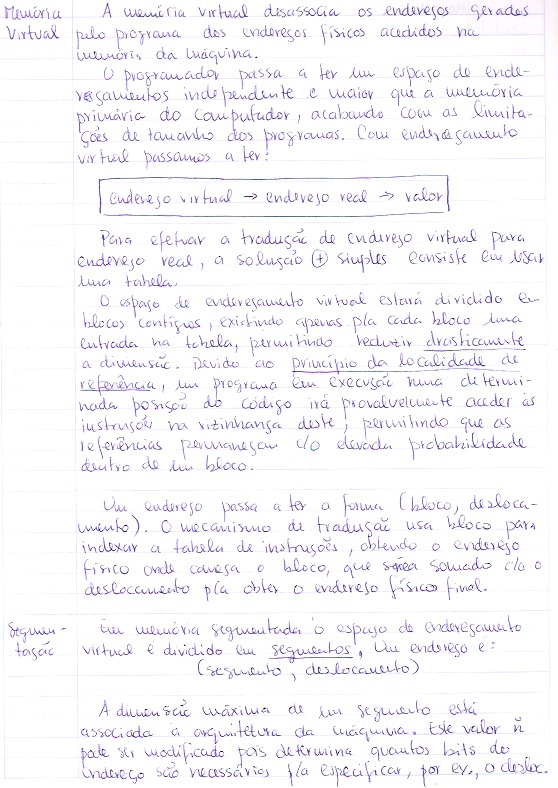 Memória Virtual
A memória virtual desassocia os endereços gerados
pelo programa dos endereços físicos acedidos na
memória da máquina.
O programador passa a ter um espaço de ende-
reçamentos independente e maior que a memória
primária do computador, acabando com as limita-
ções de tamanho dos programas. Com endereçamento
virtual passamos a ter:
endereço virtual → endereço real → valor
Para efetuar a tradução de endereço virtual para
endereço real, a solução ⊕ simples consiste em usar
uma tabela.
O espaço de endereçamento virtual estará dividido em
blocos contíguos, existindo apenas p/a cada bloco uma
entrada na tabela, permitindo reduzir drasticamente
a dimensão. Devido ao princípio da localidade de
referência, um programa em execução numa determi-
nada posição do código irá provavelmente aceder às
instruções na vizinhança deste, permitindo que as
referências permaneçam c/o elevada probabilidade
dentro de um bloco.
Um endereço passa a ter a forma (bloco, desloca-
mento). O mecanismo de tradução usa bloco para
indexar a tabela de instruções, obtendo o endereço
físico onde começa o bloco, que será somado c/o o
deslocamento p/a obter o endereço físico final.
Segmen-
tação
Em memória segmentada o espaço de endereçamento
virtual é dividido em segmentos. Um endereço é:
(segmento, deslocamento)
A dimensão máxima de um segmento está
associada à arquitetura da máquina. Este valor ñ
pode ser modificado pois determina quantos bits do
endereço são necessários p/a especificar, por ex., o desloc.